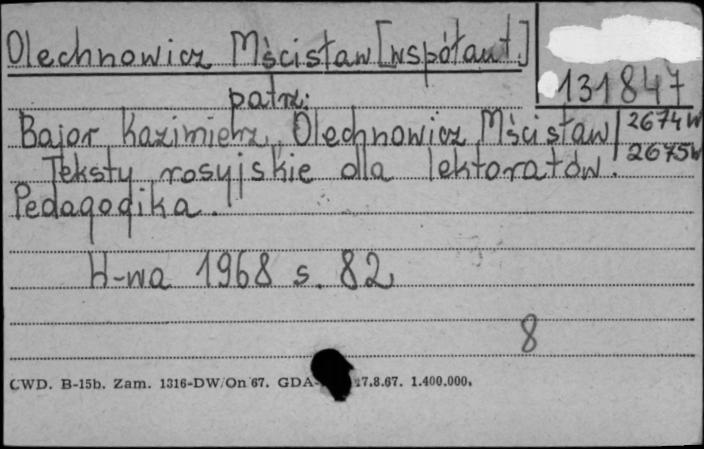 Olechnowicz Mścisław [współaut.]
131847
patrz:
Bajor Kazimierz, Olechnowicz Mścisław
2674W
2675W
Teksty rosyjskie dla lektoratów.
Pedagogika.
W-wa 1968 s. 82
8
CWD. B-15b. Zam. 1316-DW/On 67. GDA- 17.8.67. 1.400.000.